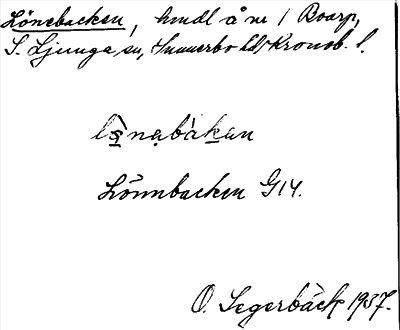 Lönebacken, hmdl å nr 1 Boarp,
S. Ljunga sn, Sunnerbo hd, Kronob. l.
lö̀nabàkan
Lönnbacken G14.
O. Segerbäck 1937.